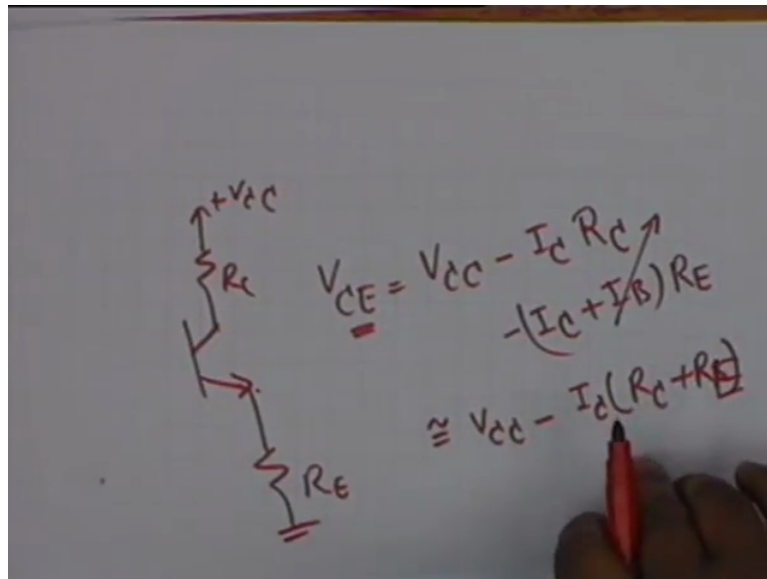 +VCC
RC
VCE = VCC - IC RC
-(IC + IB) RE
≅ VCC - IC (RC + RE)
RE